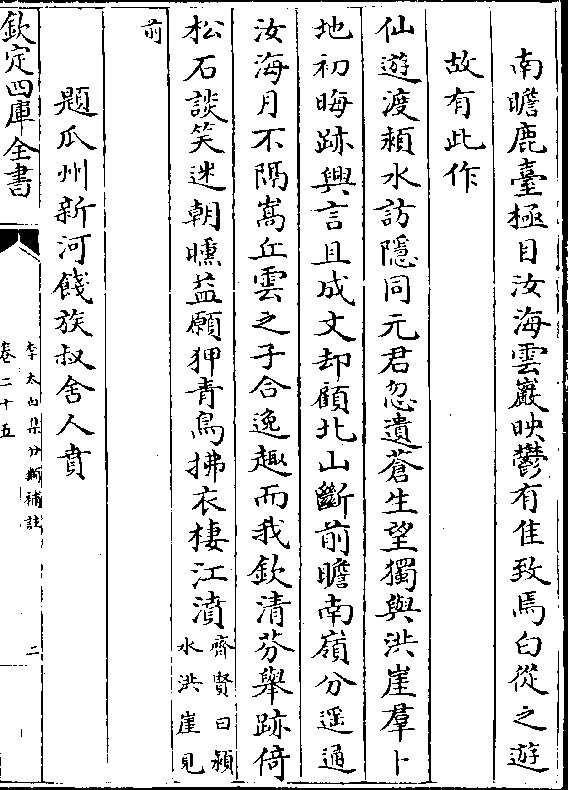 南瞻鹿臺極目汝海雲巖映鬱有佳致焉白從之遊
故有此作
仙遊渡潁水訪隱同元君忽遺蒼生望獨與洪崖羣卜
地初晦跡興言且成文却顧北山斷前瞻南嶺分遥通
汝海月不隔嵩丘雲之子合逸趣而我欽清芬舉跡倚
松石談笑迷朝曛益願狎青鳥拂衣棲江濆
齊賢曰潁
水洪崖見
前
題瓜州新河餞族叔舍人賁
欽定四庫全書
李太白集分類補註
卷二十五
二